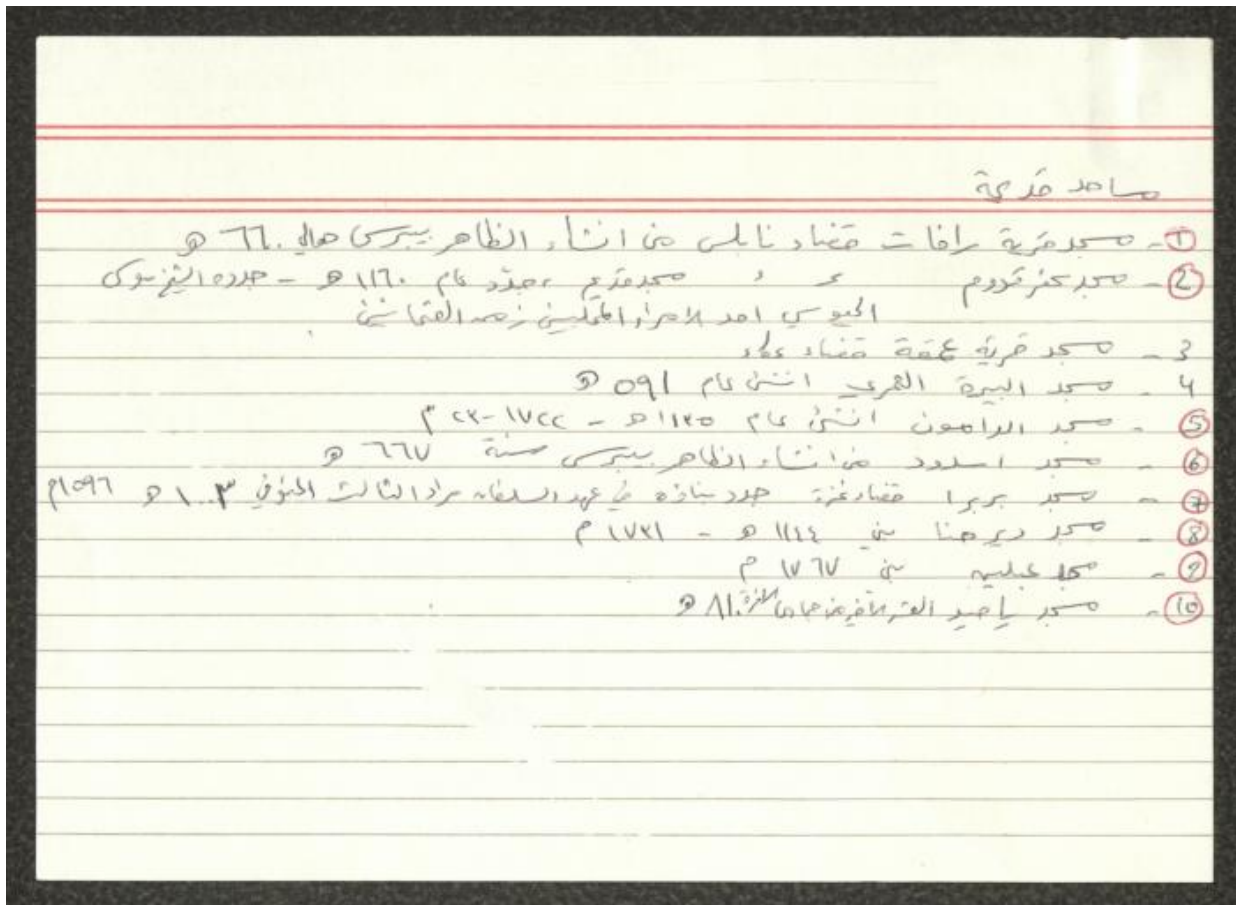 مساجد قديمة
1- مسجد قرية رافات قضاء نابلس من انشاء الظاهر بيبرس حوالي ٦٦٠ هـ
2- مسجد كفر قدوم مسجد قديم جدد عام ١١٦٠ هـ - جدده الشيخ
الجيوسي احد الامراء المحليين زمن العثمانيين
3- مسجد قرية عمقة قضاء عكاء
4- مسجد البيرة العمري انشئ عام ٥٩١ هـ
5- مسجد الدامون انشئ عام ١١٣٥ هـ - ١٧٢٢-٢٣ م
6- مسجد اسدود من انشاء الظاهر بيبرس سنة ٦٦٧ هـ
7- مسجد بربرا قضاء غزة جدد بناؤه في عهد السلطان مراد الثالث المتوفي ١٠٠٣ هـ ١٥٩٦م
8- مسجد ديرحنا بني ١١٤٤ هـ - ١٧٣١ م
9- مسجد عبلين بني ١٧٦٧ م
10- مسجد ياصيد ٨١٠ هـ